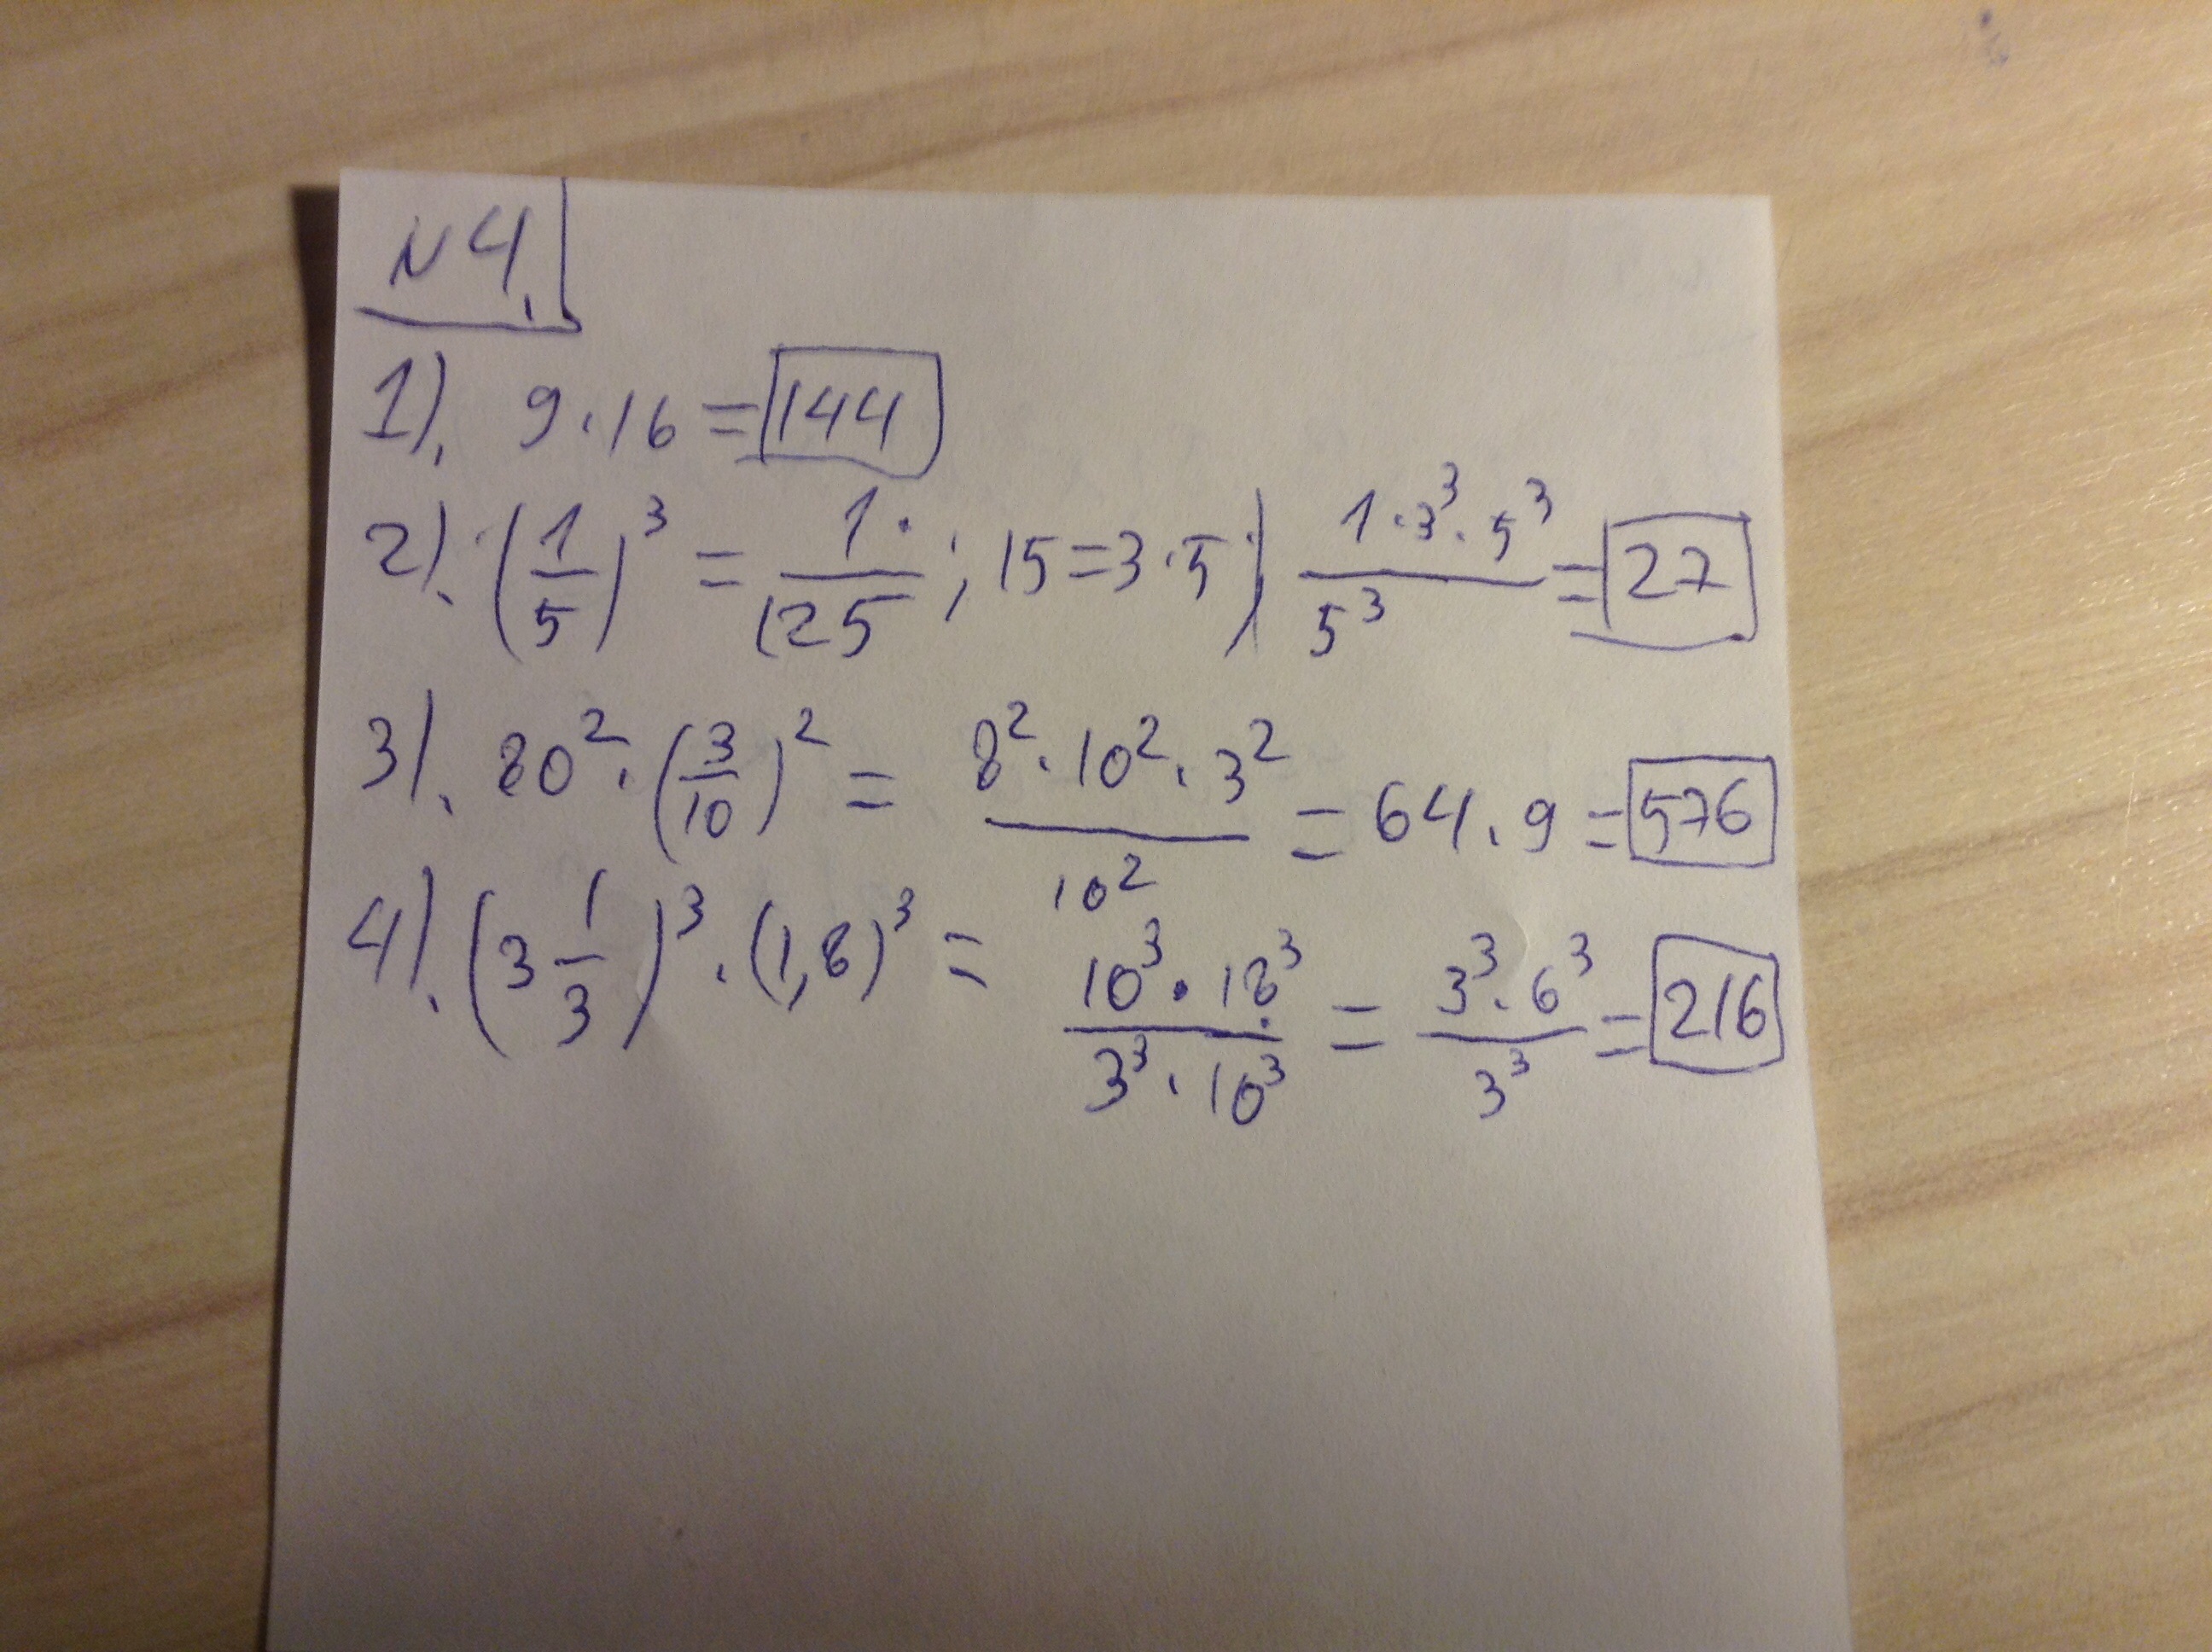 N4.
1). 9·16=144
2). (1/5)³ = 1·/125; 15=3·5) 1·3³·5³/5³=27
3). 80²·(3/10)² = 8²·10²·3²/10² = 64·9=576
4). (3 1/3)³·(1,8)³ = 10³·18³/3³·10³ = 3³·6³/3³=216